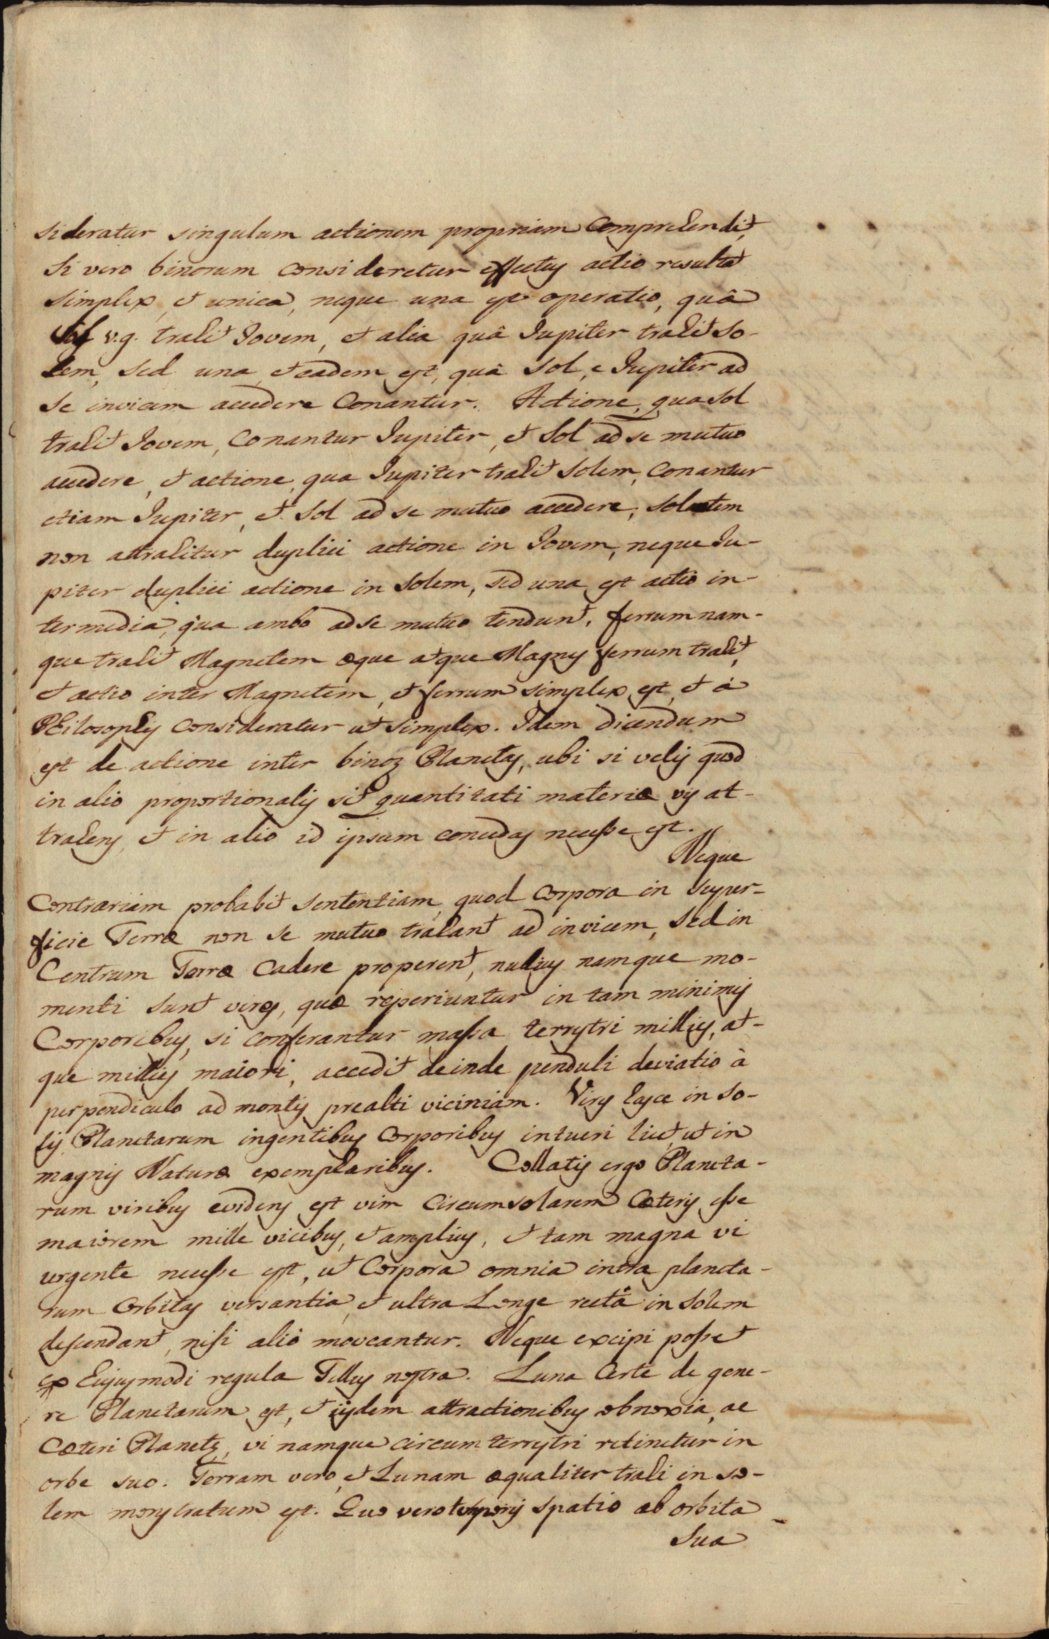 sideratur singulum actionem propriam comprehendit,
Si vero binorum consideretur effectus actio resultat
simplex, et unica, neque una est operatio, quâ
Sol v.g. trahit Jovem, et alia quâ Jupiter trahit So-
lem, sed una, et eadem est, quâ Sol, e Jupiter ad
se invicem accedere conantur. Actione, qua Sol
trahit Jovem, conantur Jupiter, et Sol ad se mutuo
accedere, et actione, qua Jupiter trahit Solem, conantur
etiam Jupiter, et Sol ad se mutuo accedere; Sol autem
non attrahitur duplici actione in Jovem, neque Ju-
piter duplici actione in Solem, sed una est actio in-
termedia, qua ambo ad se mutuo tendunt. ferrum nam-
que trahit Magnetem æque atque Magnes ferrum trahit,
et actio inter Magnetem, et ferrum simplex est, et à
Philosophis consideratur ut simplex. Idem dicendum
est de actione inter binos Planetas, ubi si velis quod
in alio proportionalis sit quantitati materiæ vis at-
trahens, et in alio id ipsum concedas necesse est.
Neque
contrariam probabit sententiam, quod corpora in super-
ficie Terræ non se mutuo trahant ad invicem, sed in
Centrum Terræ cadere properent, nullius namque mo-
menti sunt vires, quæ reperiuntur in tam minimis
Corporibus, si conferantur massa terrestri millies, at-
que millies maiori, accedit deinde penduli deviatio à
perpendiculo ad montis prealti viciniam. Vires hasce in so-
lis Planetarum ingentibus corporibus intueri licet, ut in
magnis Naturæ exemplaribus. Collatis ergo Planeta-
rum viribus evidens est vim circumsolarem cæteris esse
maiorem mille vicibus, et amplius, et tam magna vi
urgente necesse est, ut Corpora omnia intra planeta-
rum orbitas versantia, et ultra longe rectâ in Solem
descendant, nisi aliò moveantur. Neque excipi posset
ex huiusmodi regula Tellus nostra. Luna certe de gene-
re Planetarum est, et iisdem attractionibus obnoxia, ac
cæteri Planetæ, vi namque circumterrestri retinetur in
orbe suo. Terram vero, et Lunam æqualiter trahi in So-
lem monstratum est. Quo vero temporis spatio ab orbita
sua